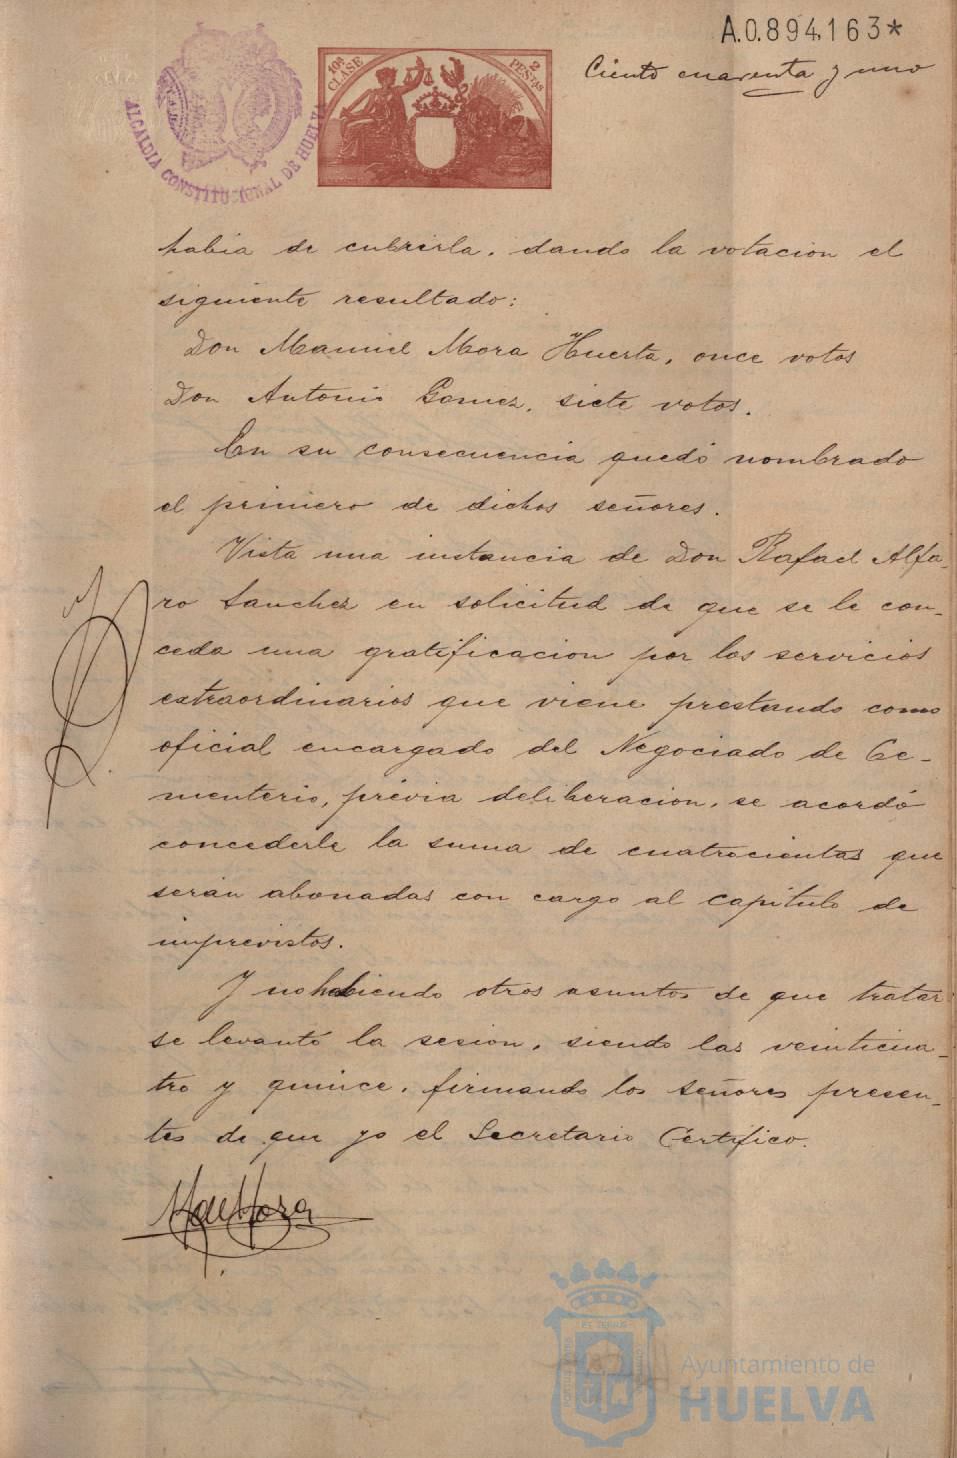 A.0.894,163*
Ciento cuarenta y uno
10ª CLASE
2 PESTAS
ALCALDIA CONSTITUCIONAL DE HUELVA
habia de cubrirla, dando la votacion el
siguiente resultado:
Don Manuel Mora Huerta, once votos
Don Antonio Gomez, siete votos.
En su consecuencia quedó nombrado
el primero de dichos señores.
Vista una instancia de Don Rafael Alfa-
ro Sanchez en solicitud de que se le con-
ceda una gratificacion por los servicios
extraordinarios que viene prestando como
oficial encargado del Negociado de Ce-
menterio, prévia deliberacion, se acordó
concederle la suma de cuatrocientas que
serán abonadas con cargo al capitulo de
imprevistos.
Y no habiendo otros asuntos de que tratar
se levantó la sesion, siendo las veinticua-
tro y quince, firmando los señores presen-
tes de que yo el Secretario Certifico.
Ayuntamiento de
HUELVA